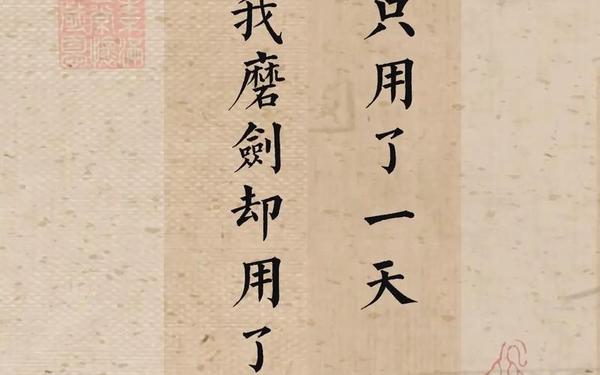 只用了一天
我磨劍却用了